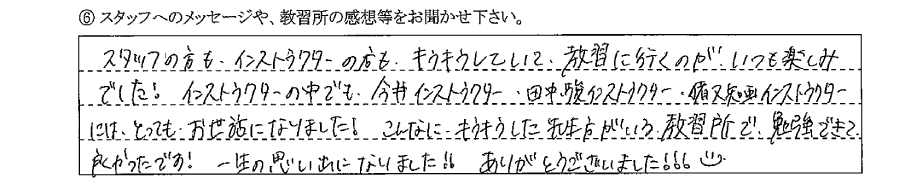 ⑥ スタッフへのメッセージや、教習所の感想等をお聞かせ下さい。
スタッフの方も、インストラクターの方も、キラキラしていて、教習に行くのが、いつも楽しみ
でした! インストラクターの中でも、今井インストラクター・田中駿インストラクター・インストラクター
には、とっても、お世話になりました! こんなに、キラキラした先生方がいる、教習所で、勉強できて
良かったです! 一生の思い出になりました!! ありがとうございました!!!